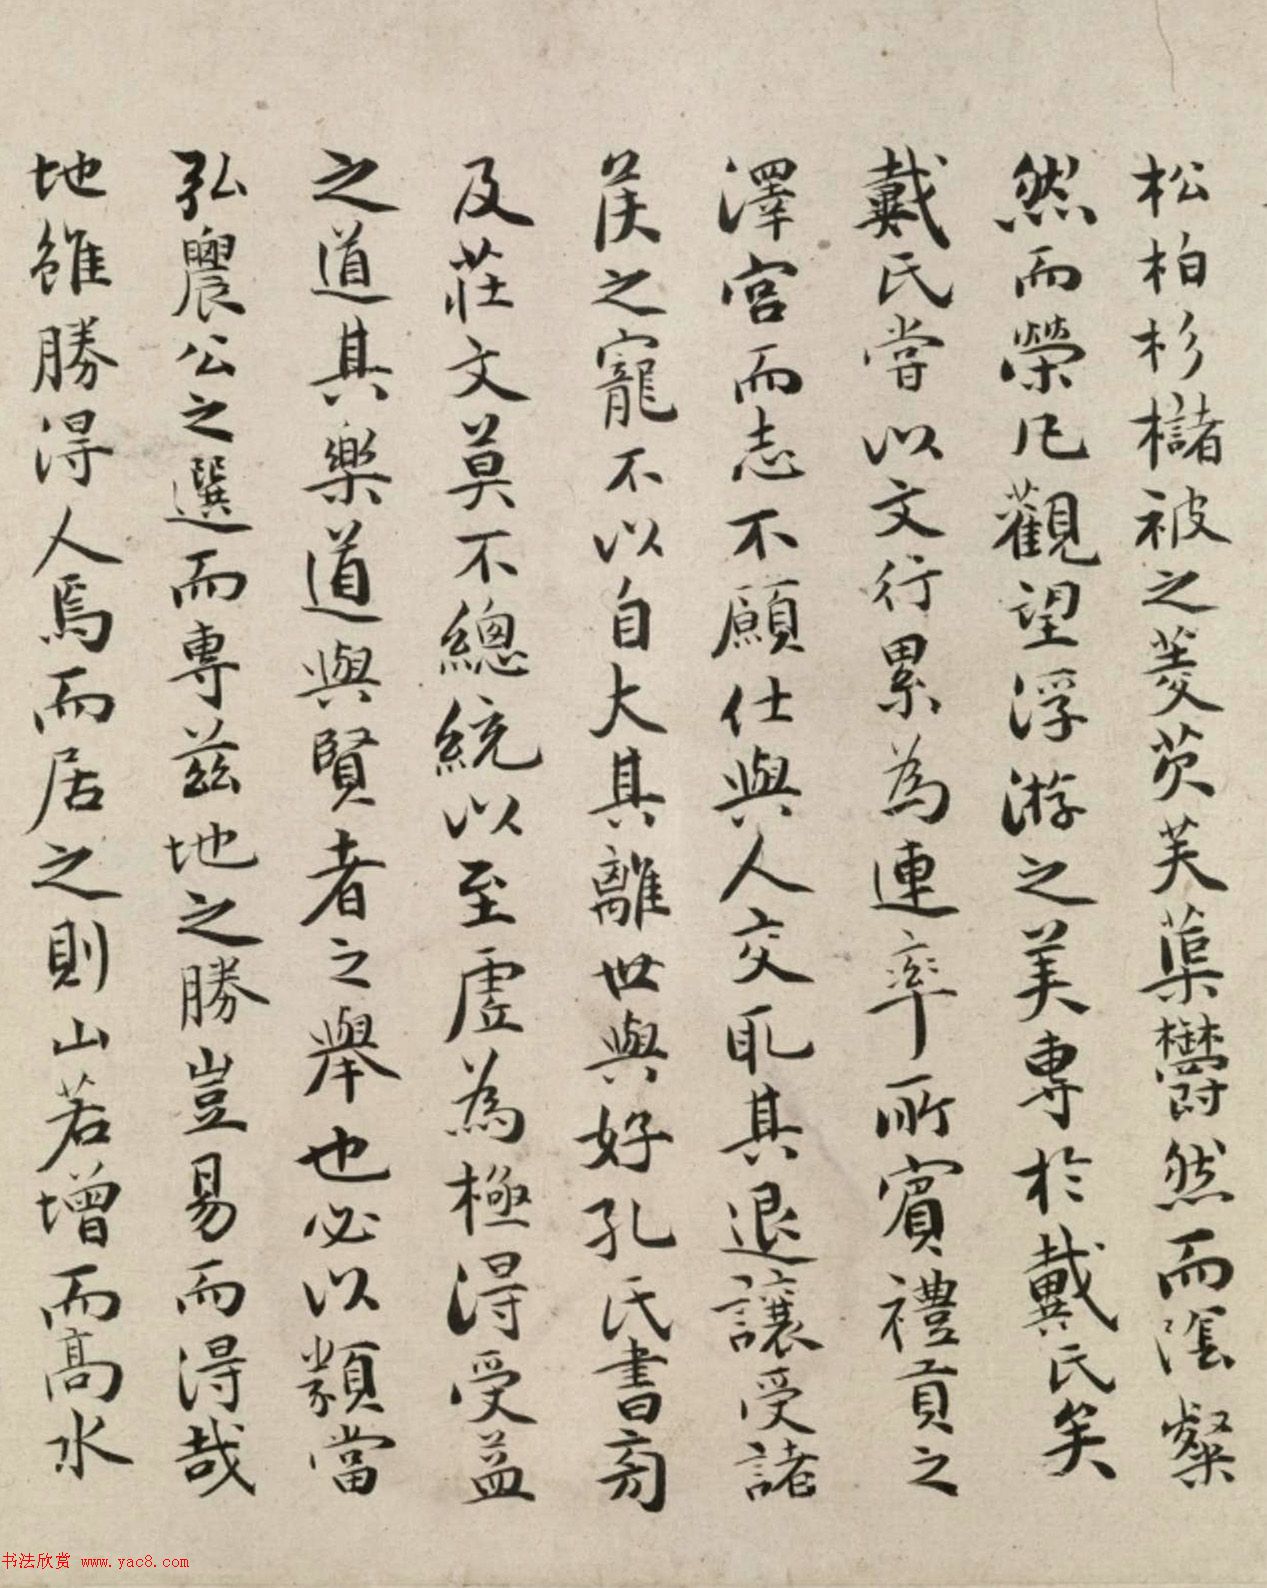 松柏杉櫧被之菱芡芙蕖欝然而隂粲
然而榮凡觀望浮游之美專於戴氏矣
戴氏嘗以文行累為連率所賓禮貢之
澤宮而志不願仕與人交取其退讓受諸
侯之寵不以自大其離世與好孔氏書旁
及莊文莫不總統以至虛為極得受益
之道其樂道與賢者之舉也必以類當
弘農公之選而專茲地之勝豈易而得哉
地雖勝得人焉而居之則山若增而高水
书法欣赏 www.yac8.com